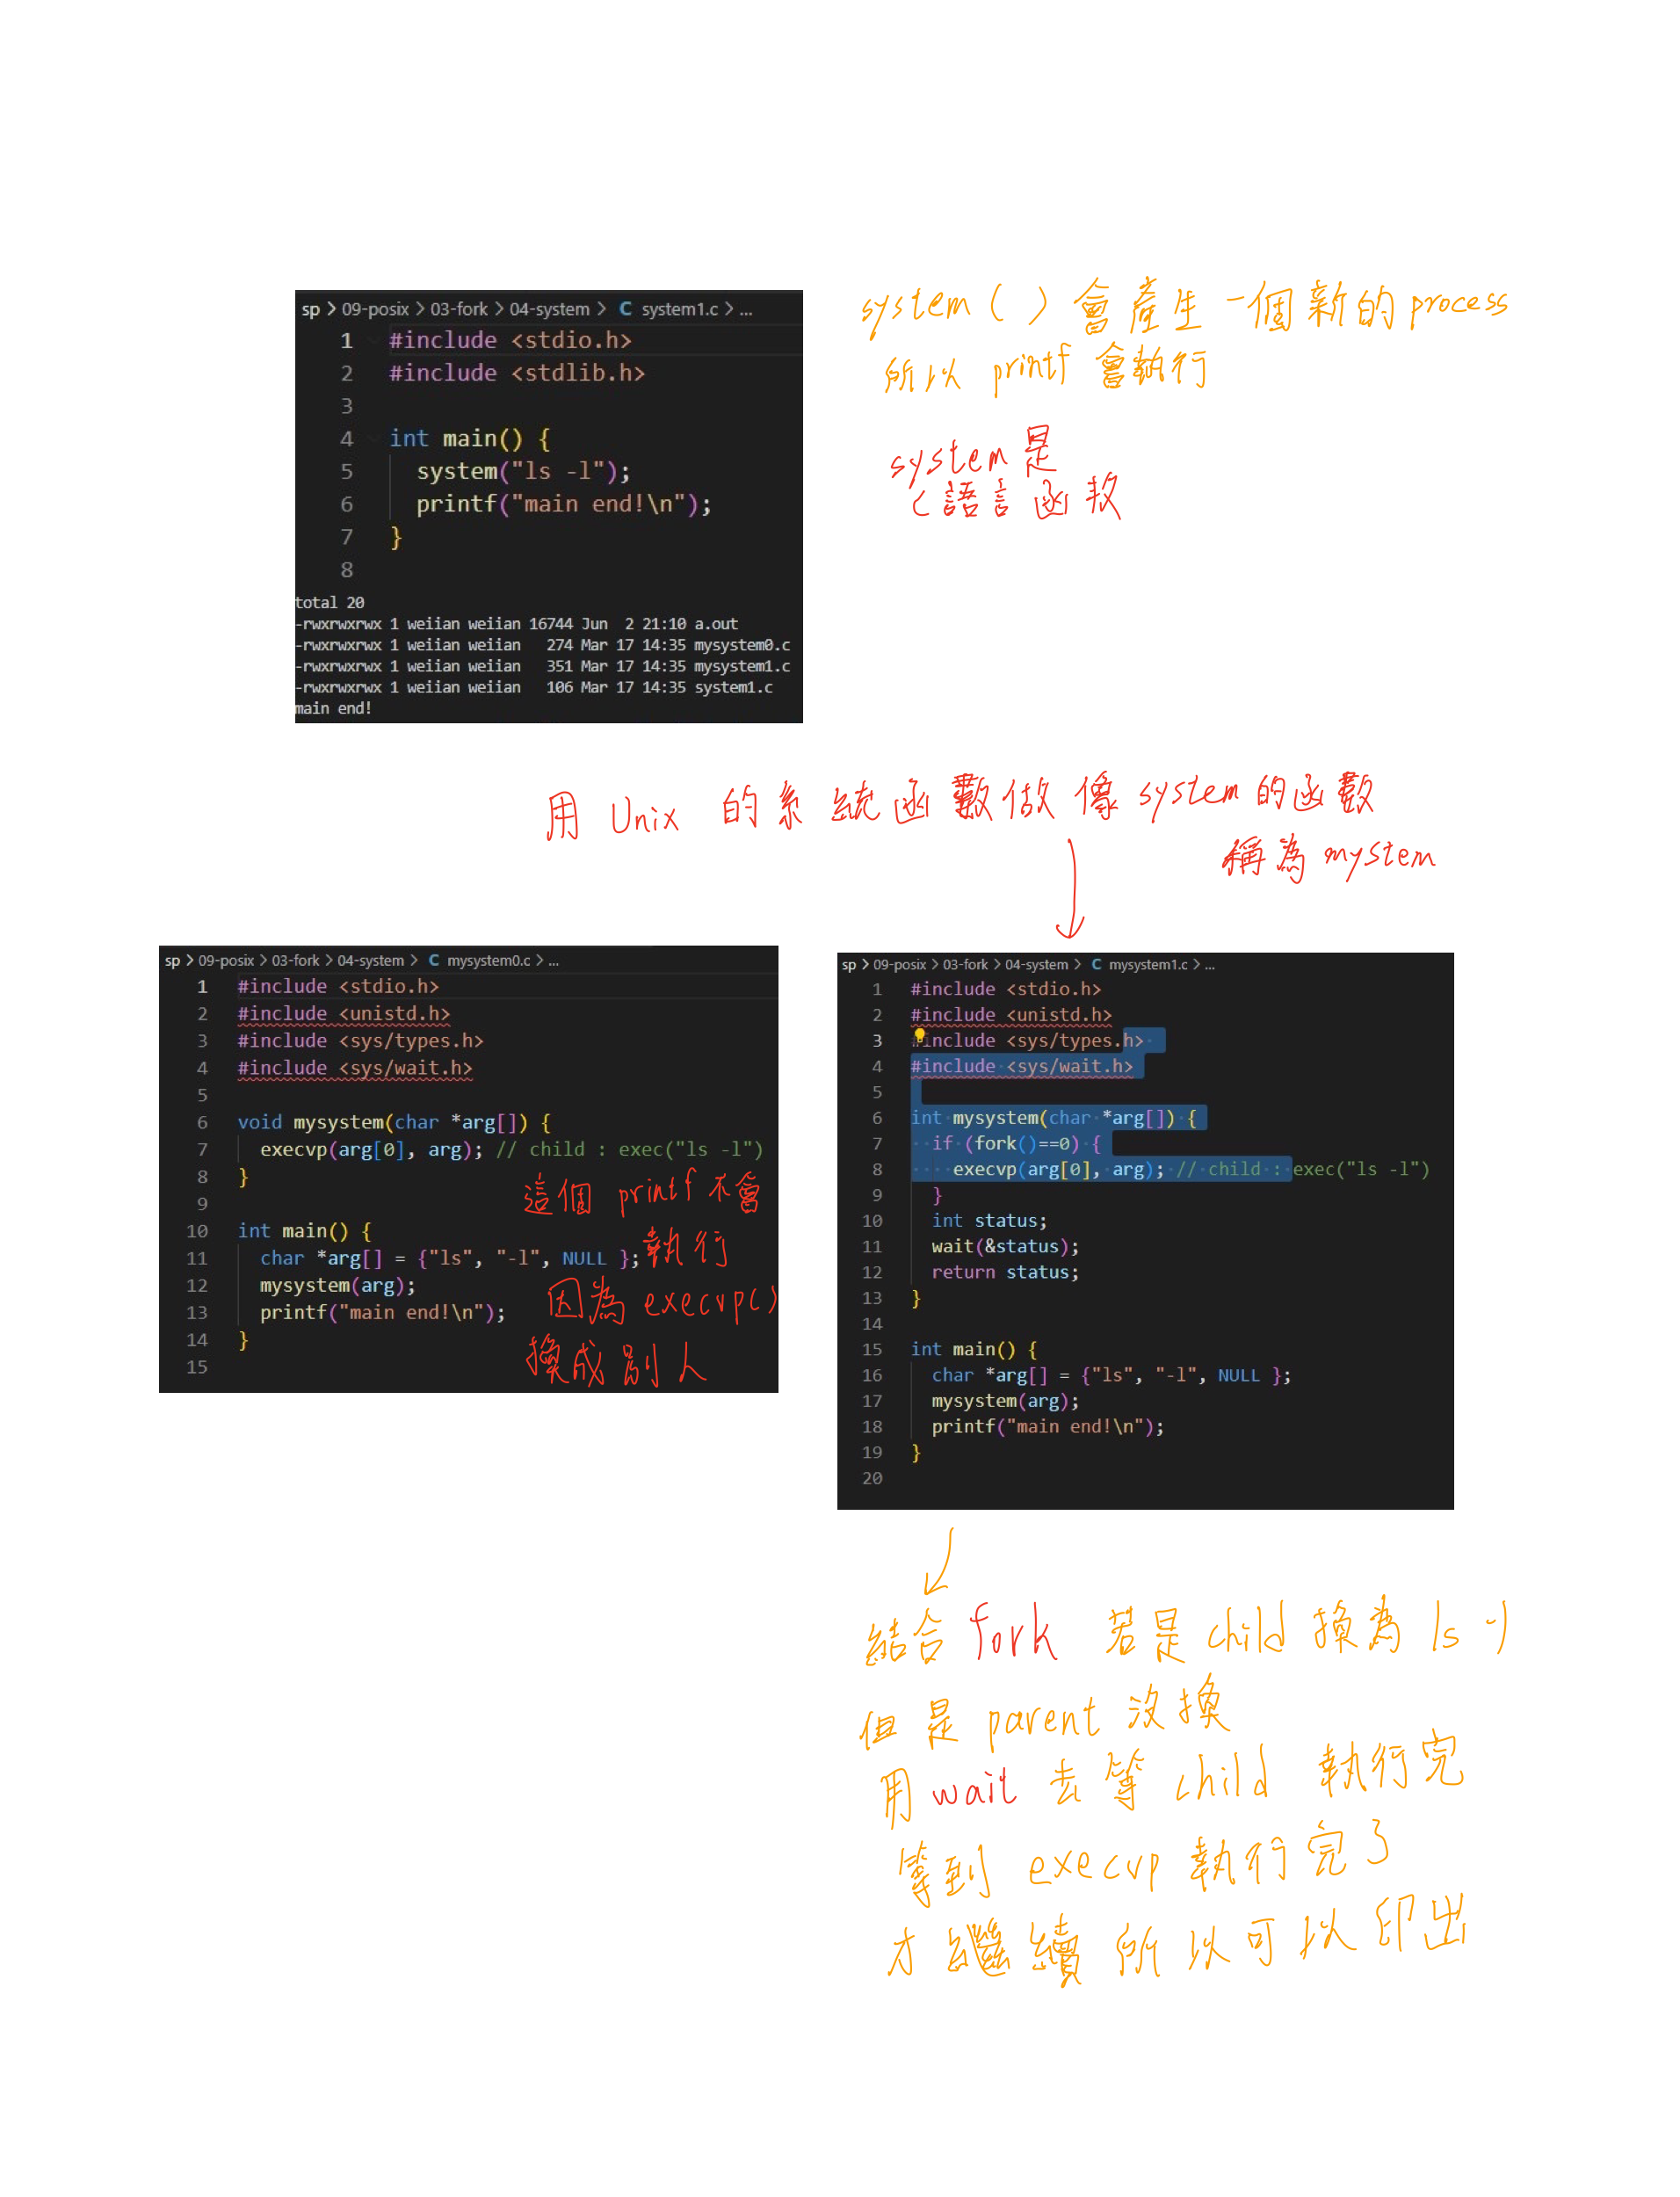 sp > 09-posix > 03-fork > 04-system > C system1.c > ...
1 #include <stdio.h>
2 #include <stdlib.h>
3
4 int main() {
5 system("ls -l");
6 printf("main end!\n");
7 }
8
total 20
-rwxrwxrwx 1 weiian weiian 16744 Jun  2 21:10 a.out
-rwxrwxrwx 1 weiian weiian   274 Mar 17 14:35 mysystem0.c
-rwxrwxrwx 1 weiian weiian   351 Mar 17 14:35 mysystem1.c
-rwxrwxrwx 1 weiian weiian   106 Mar 17 14:35 system1.c
main end!
system ( ) 會產生一個新的process
所以 printf 會執行
system是
C語言函数
用 Unix 的系統函數做像system的函數
稱為 mystem
sp > 09-posix > 03-fork > 04-system > C mysystem0.c > ...
1 #include <stdio.h>
2 #include <unistd.h>
3 #include <sys/types.h>
4 #include <sys/wait.h>
5
6 void mysystem(char *arg[]) {
7 execvp(arg[0], arg); // child : exec("ls -l")
8 }
9
10 int main() {
11 char *arg[] = {"ls", "-l", NULL };
12 mysystem(arg);
13 printf("main end!\n");
14 }
15
這個 printf 不會
執行
因為 execvp()
換成別人
sp > 09-posix > 03-fork > 04-system > C mysystem1.c > ...
1 #include <stdio.h>
2 #include <unistd.h>
3 #include <sys/types.h>
4 #include <sys/wait.h>
5
6 int mysystem(char *arg[]) {
7 if (fork()==0) {
8 execvp(arg[0], arg); // child : exec("ls -l")
9 }
10 int status;
11 wait(&status);
12 return status;
13 }
14
15 int main() {
16 char *arg[] = {"ls", "-l", NULL };
17 mysystem(arg);
18 printf("main end!\n");
19 }
20
結合 fork 若是 child 換為 ls -l
但是 parent 沒換
用 wait 去等 child 執行完
等到 execvp 執行完了
才繼續 所以可以印出